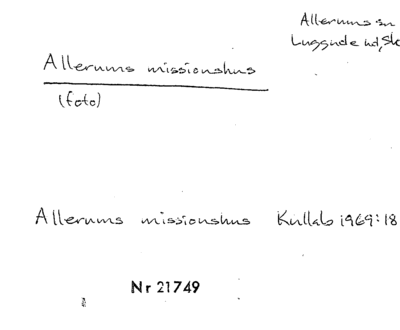 Allerums sn
Luggude hd, Sk
Allerums missionshus
(foto)
Allerums missionshus Kullab 1969:18
Nr 21749